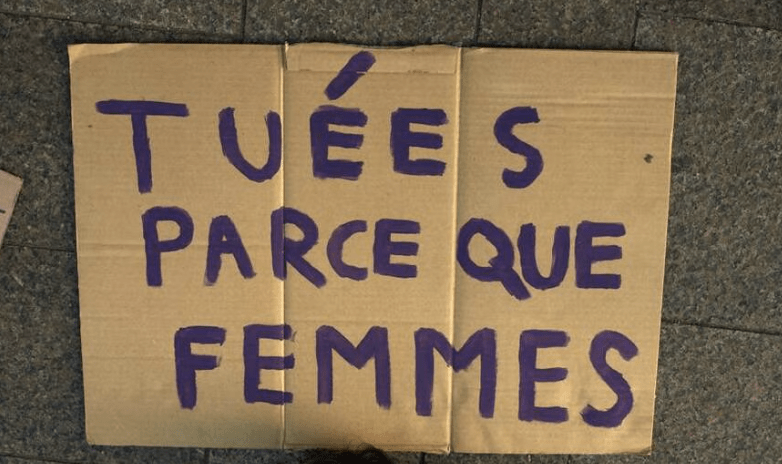 TUÉES
PARCE QUE
FEMMES